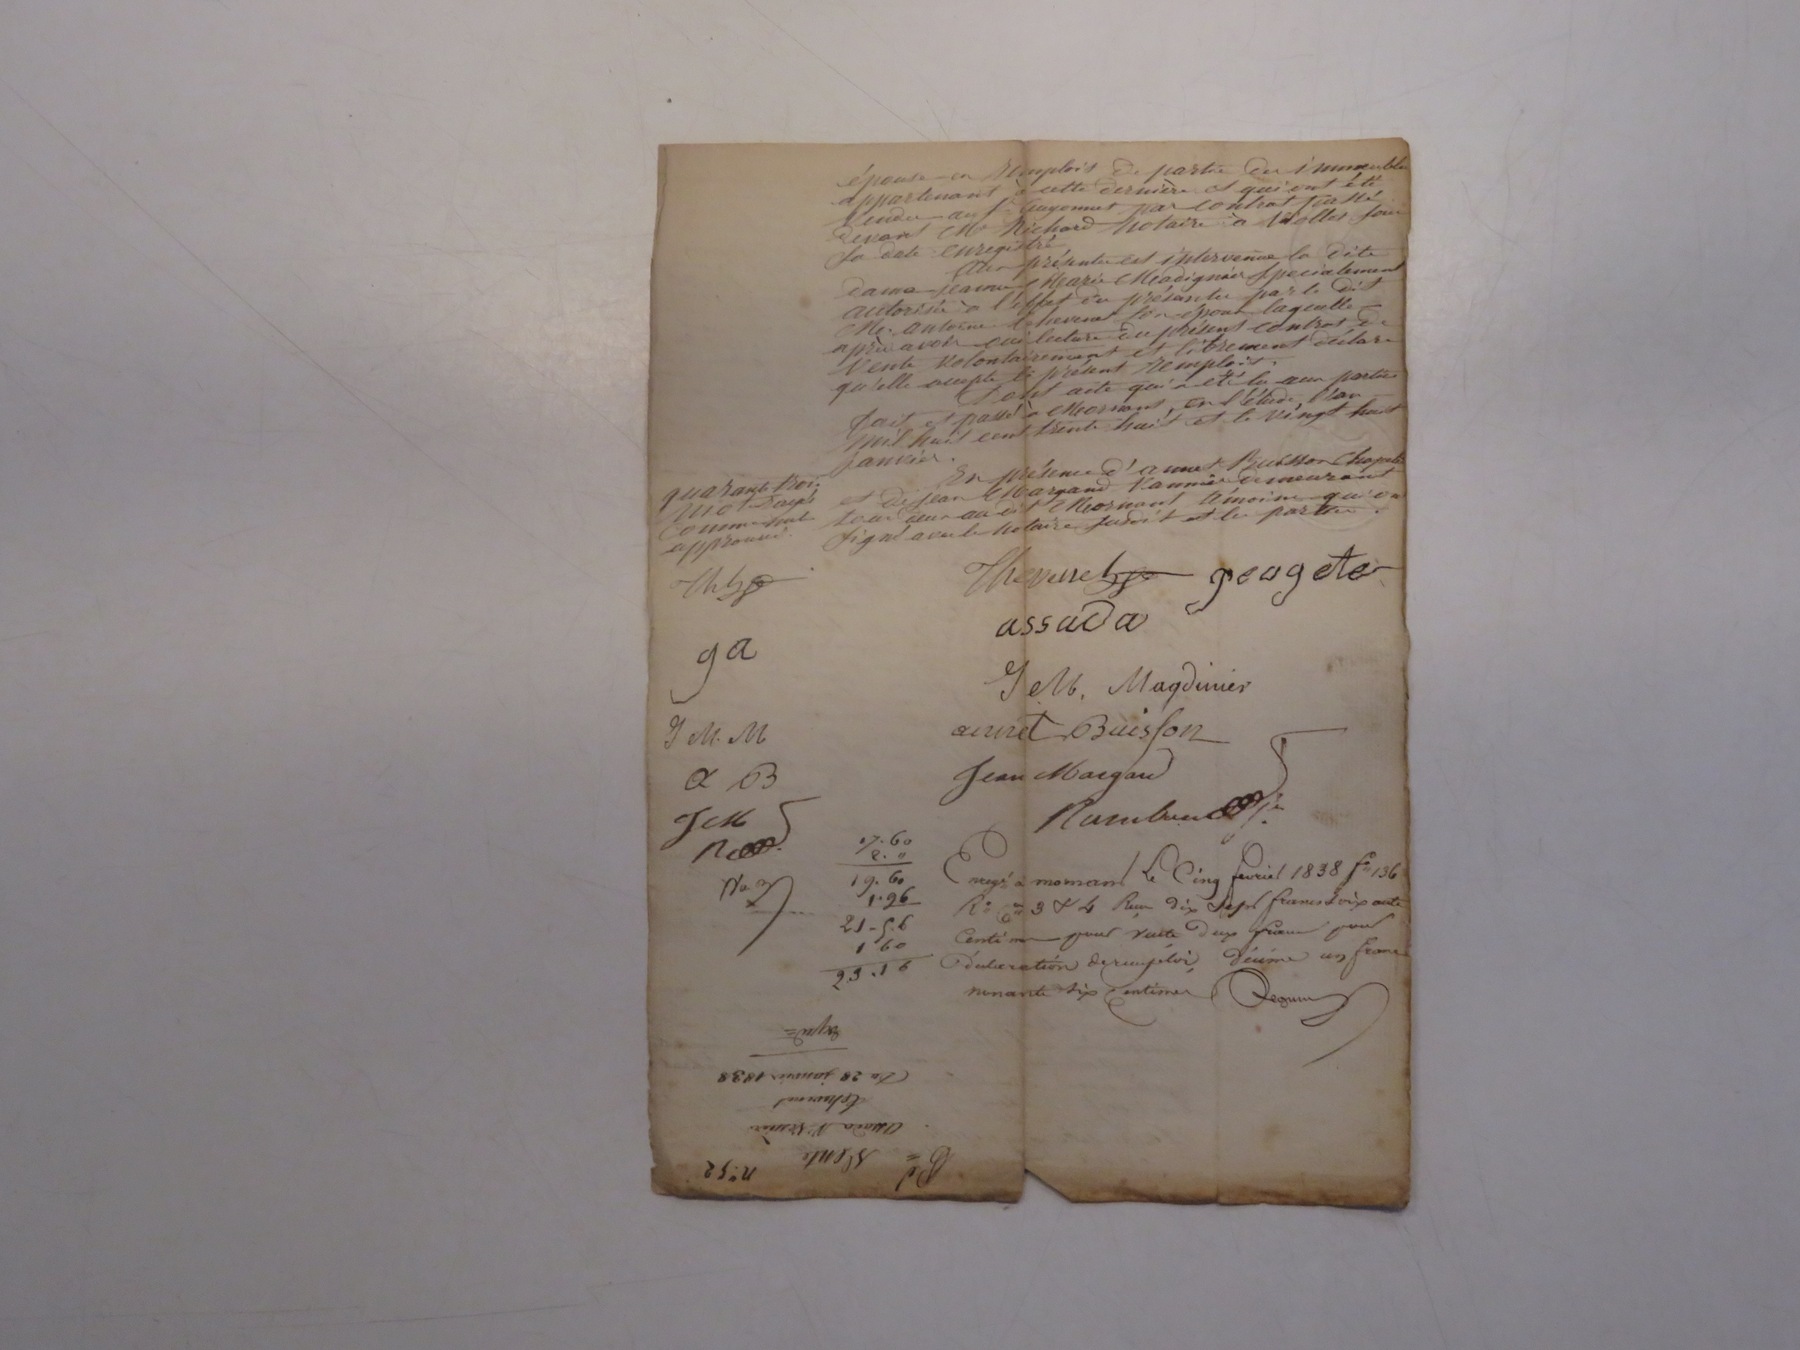 épouse en remplois de partie des immeubles
appartenant à cette dernière et qui ont été
vendu au Sr Guyonnet par contrat passé
devant Me Richard notaire à
sa date enregistré
Aux présentes est intervenue la dite
dame jeanne Marie Madignier spécialement
autorisée à l'effet des présentes par le dit
Me. antoine Thevenet son époux laquelle
après avoir oui lecture du présent contrat de
vente volontairement et librement déclare
qu'elle accepte le présent remplois.
Dont acte qui a été lu aux parties
fait et passé à Mornant, en l'étude, l'an
mil huit cent trente huit et le vingt huit
janvier.
En présence d'annet Buisson Chapelier
et de Jean Margand vannier demeurant
tous deux au dit Mornant témoins qui ont
signé avec le notaire susdit et les parties.
quarante trois
mots rayés
comme nuls
approuvé.
Th
ga
J M. M
a B
J M
R
Thevenet geogete
assada
J M. Magdinier
annet Buisson
Jean Margand
Enregé à mornant le Cinq fevrier 1838 fo 136
Ro Ces 3 & 4 Reçu dix sept francs soixante
Centimes pour vente deux francs pour
déclaration de remploi, décime un franc
nonante six Centimes
17.60
2. "
19.60
1.96
1 60
23.16
no. 52
Vente
assada
Thevenet
Du 28 janvier 1838